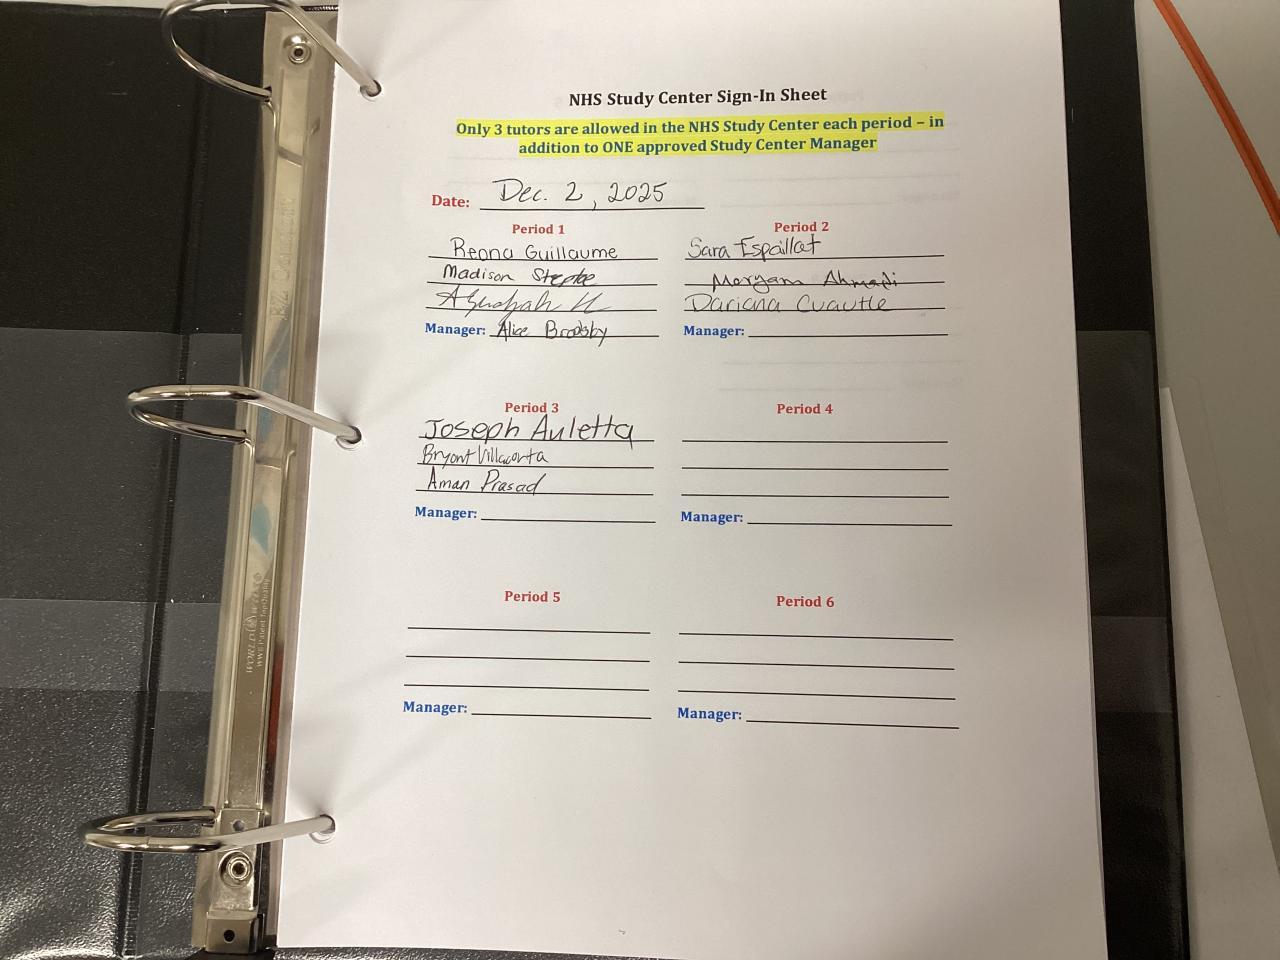 NHS Study Center Sign-In Sheet
Only 3 tutors are allowed in the NHS Study Center each period – in
addition to ONE approved Study Center Manager
Date: Dec. 2, 2025
Period 1
Reona Guillaume
Madison
Manager: Alice Brodsby
Period 2
Sara Espaillat
Maryam Ahmadi
Dariana Cuautle
Manager:
Period 3
Joseph Auletta
Bryant Villacorta
Aman Prasad
Manager:
Period 4
Manager:
Period 5
Manager:
Period 6
Manager:
WORLD